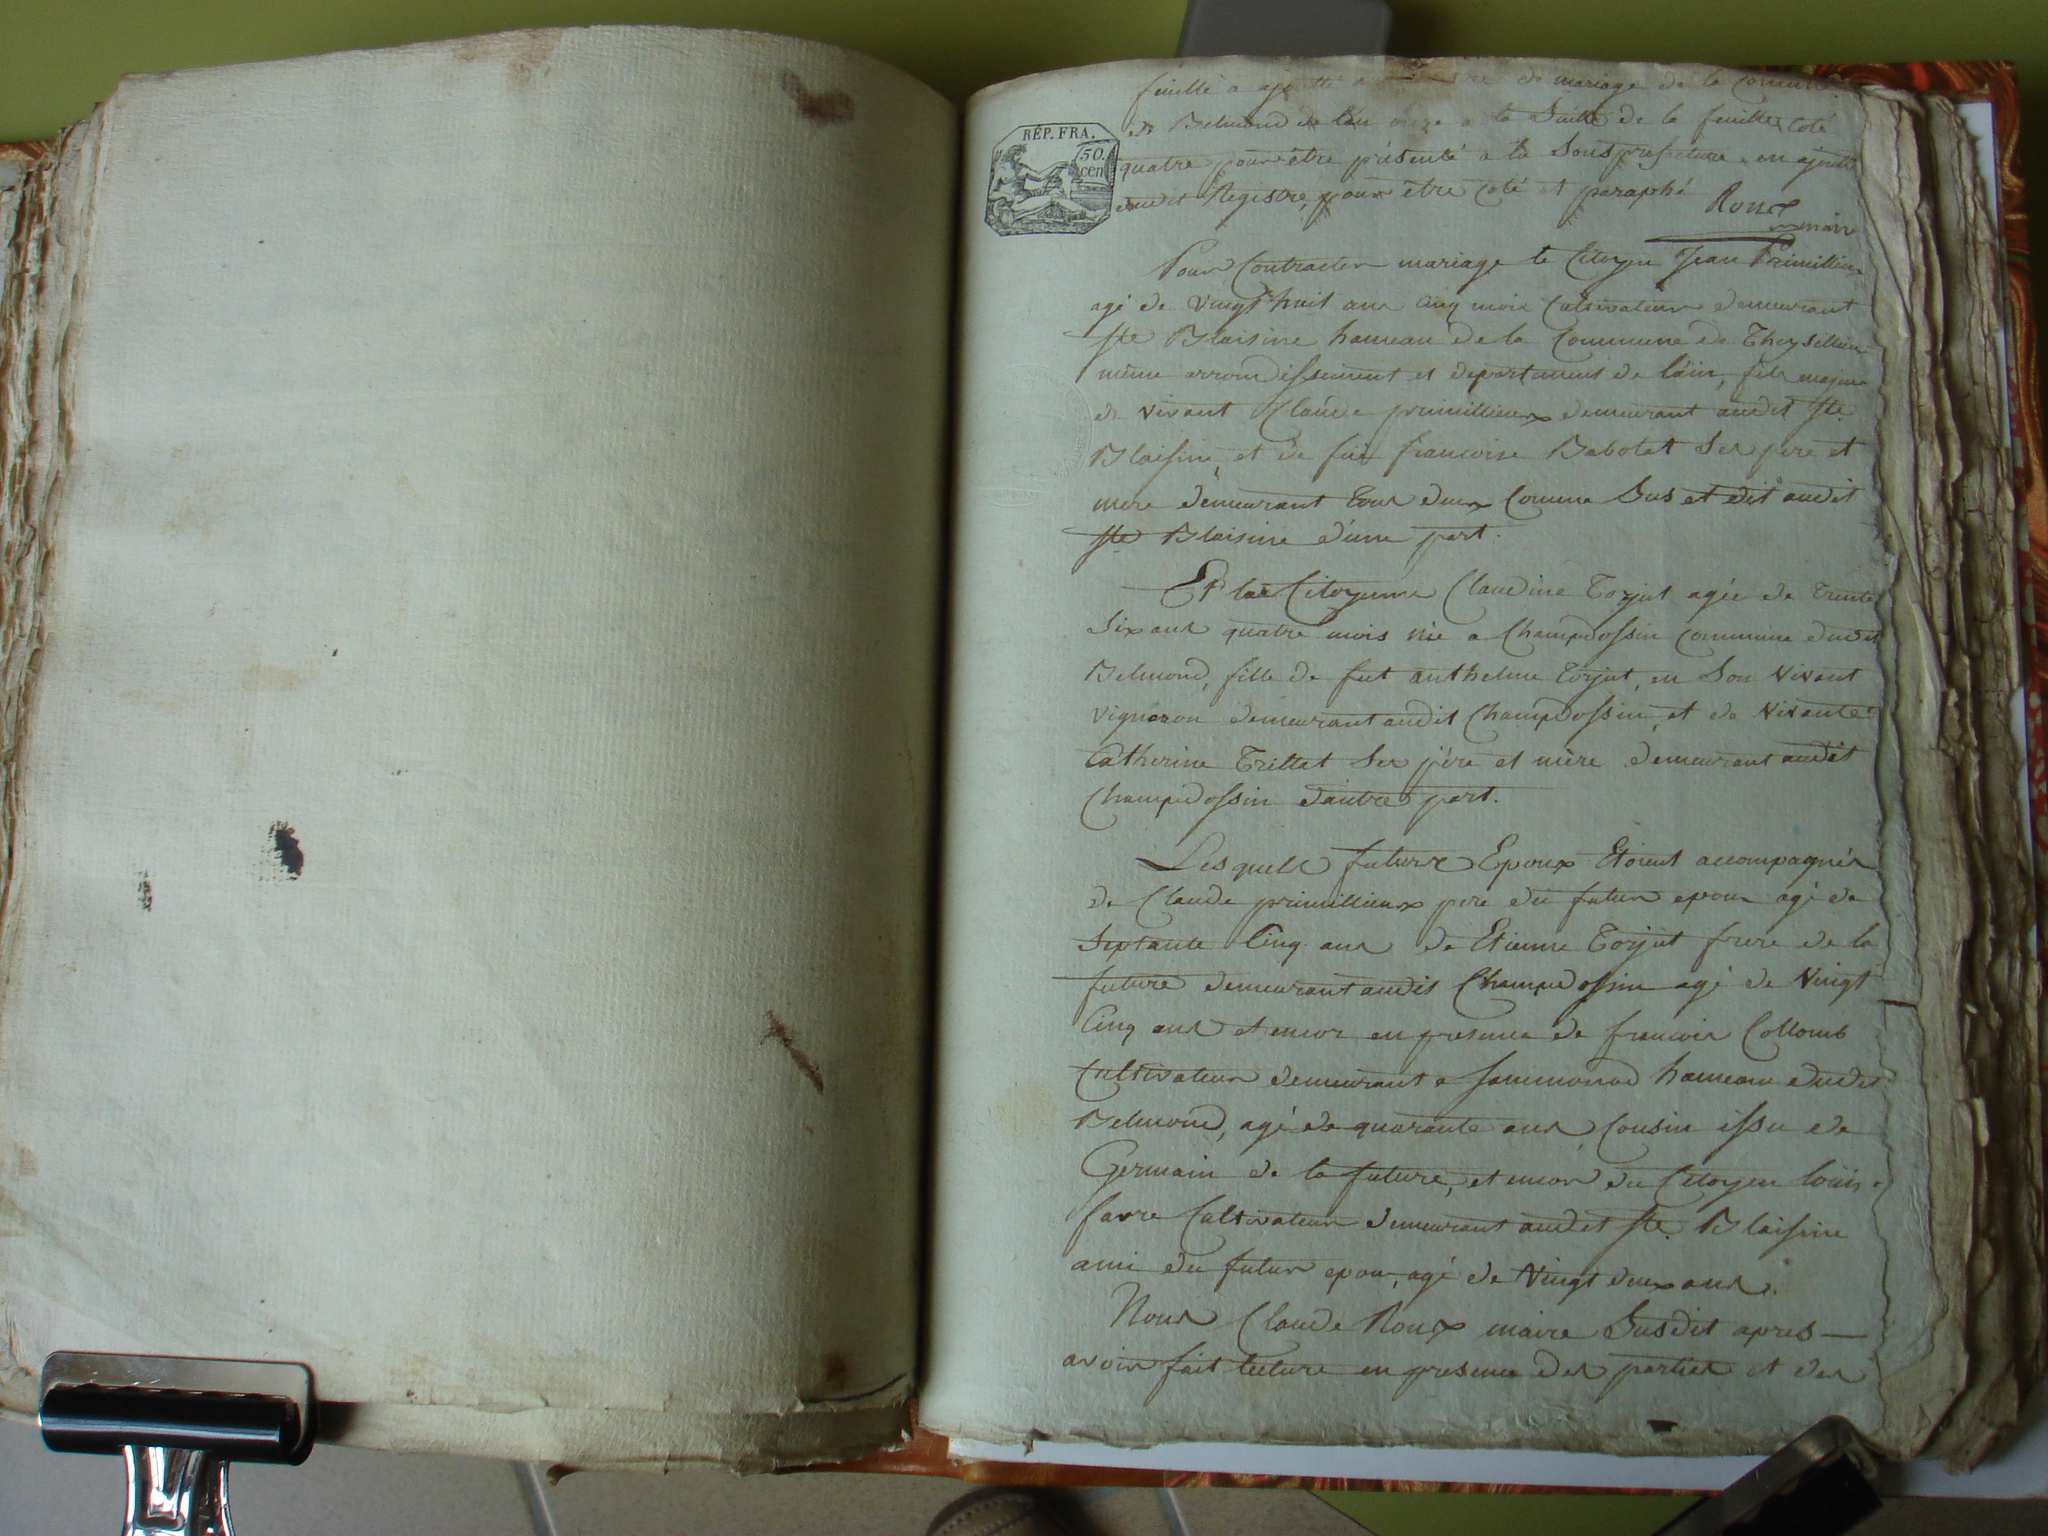 RÉP. FRA.
50.
cen
feuille a ajouté de mariage de la Commune
de Belmond de lan onze a la Suitte de la feuille Coté
quatre pour être présenté a la Sousprefecture en ajoutté
audit Registre, pour être Coté et paraphé
Roux
maire
Pour Contracter mariage le Citoyen Jean Primillieux
agé de vingt huit ans Cinq mois Cultivateur demeurant
Ste Blaisine hameau de la Commune de Theysillieu
même arrondissement et departement de l'ain, fils majeur
de vivant Claude primillieux demeurant audit Ste
Blaisine, et de fue francoise Babolat Ses pere et
mere demeurant tous deux Comme Sus et dit audit
Ste Blaisine d'une part.
Et la Citoyenne Claudine Torjut agée de trente
Six ans quatre mois née a Champdossin Commune dudit
Belmond, fille de fut anthelme torjut, en Son vivant
vigneron demeurant audit Champdossin, et de vivante
Catherine Trillat Ses père et mère demeurant audit
Champdossin dautre part.
Lesquels futurs Epoux Etoient accompagnés
de Claude primillieux pere du futur epoux agé de
Septante Cinq ans de Etienne Torjut frere de la
future demeurant audit Champdossin agé de vingt
Cinq ans et encor en presence de francois Collomb
Cultivateur demeurant a Sammonod hameau dudit
Belmond, agé de quarante ans, Cousin issu de
Germain de la future, et encor du Citoyen louis
favre Cultivateur demeurant audit Ste Blaisine
ami du futur epoux, agé de vingt deux ans.
Nous Claude Roux maire Susdit apres
avoir fait lecture en presence des parties et des